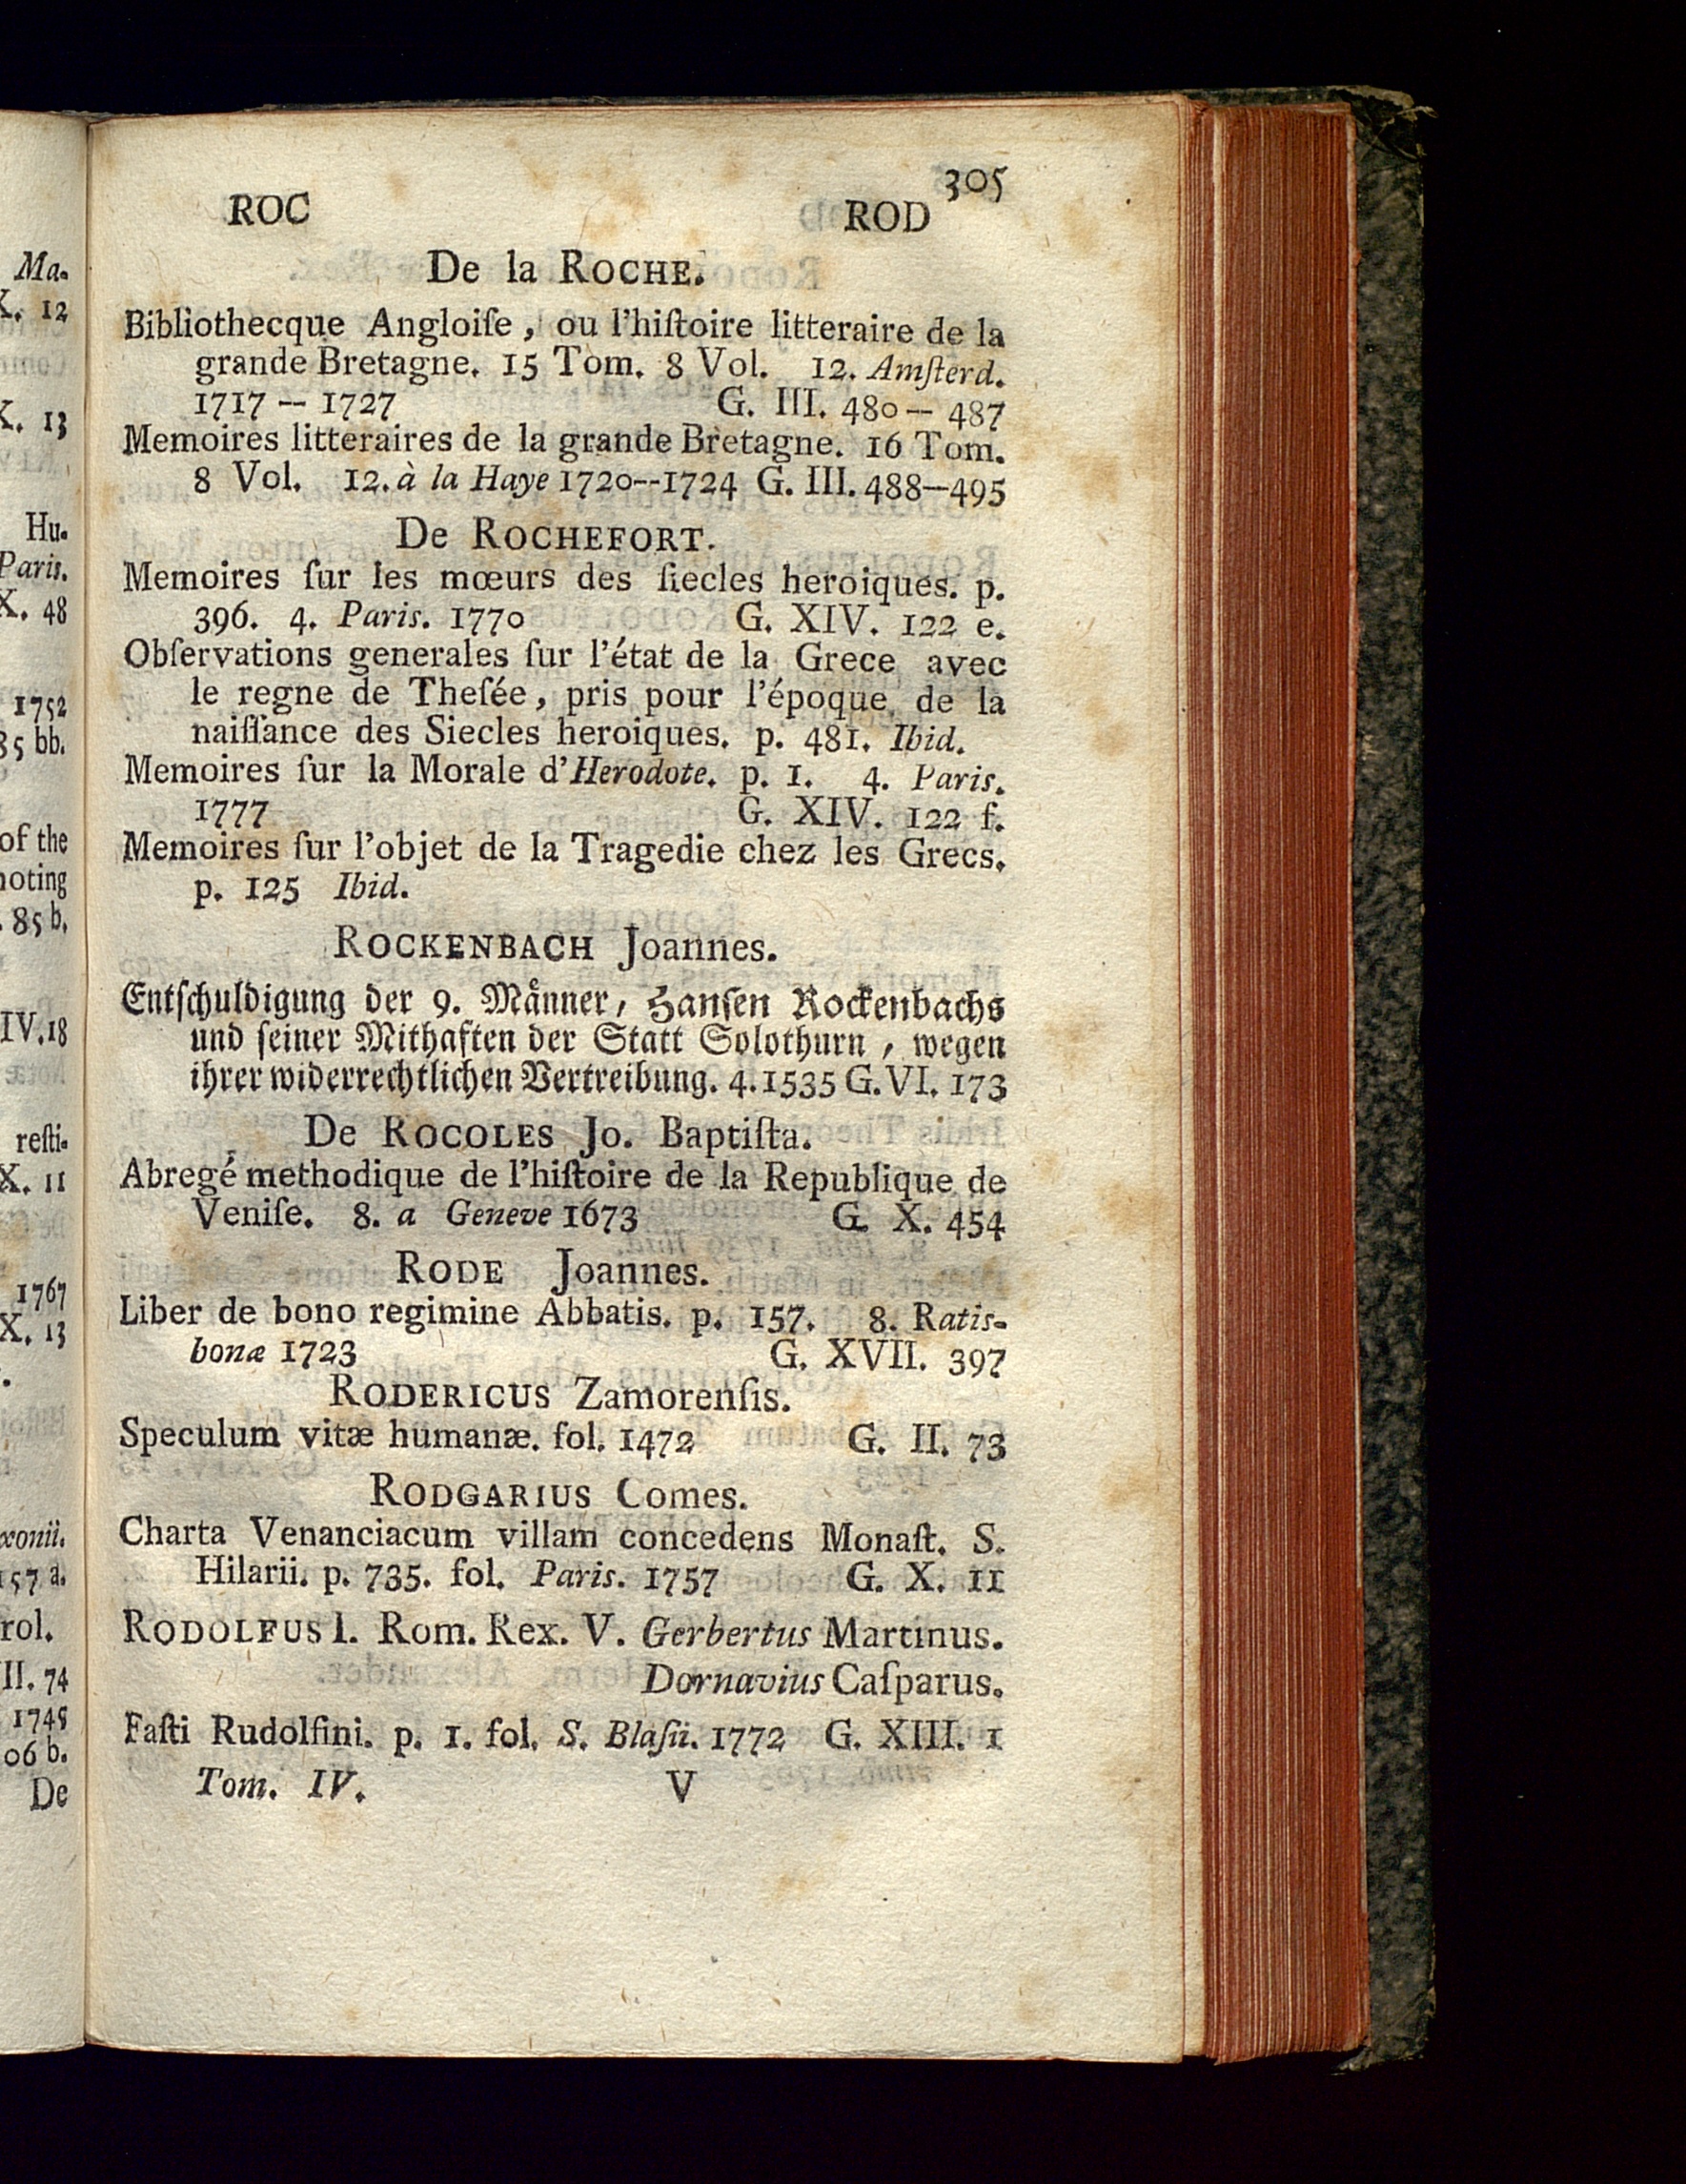 Ma-
X. 12
X. 13
Hu-
Paris.
X. 48
1752
85 bb.
of the
noting
. 85 b.
IV. 18
resti-
X. 11
1767
X. 13
xonii.
157 a.
rol.
II. 74
1748
06 b.
De
305
ROC ROD
De la ROCHE.
Bibliothecque Angloiſe, ou l'hiſtoire litteraire de la
grande Bretagne. 15 Tom. 8 Vol. 12. Amſterd.
1717 -- 1727 G. III. 480 -- 487
Memoires litteraires de la grande Bretagne. 16 Tom.
8 Vol. 12. à la Haye 1720--1724 G. III. 488--495
De ROCHEFORT.
Memoires ſur les mœurs des ſiecles heroiques. p.
396. 4. Paris. 1770 G. XIV. 122 e.
Obſervations generales ſur l'état de la Grece avec
le regne de Theſée, pris pour l'époque de la
naiſſance des Siecles heroiques. p. 481. Ibid.
Memoires ſur la Morale d'Herodote. p. 1. 4. Paris.
1777 G. XIV. 122 f.
Memoires ſur l'objet de la Tragedie chez les Grecs.
p. 125 Ibid.
ROCKENBACH Joannes.
Entſchuldigung der 9. Männer, Hanſen Rockenbachs
und ſeiner Mithaften der Statt Solothurn, wegen
ihrer widerrechtlichen Vertreibung. 4. 1535 G. VI. 173
De ROCOLES Jo. Baptiſta.
Abregé methodique de l'hiſtoire de la Republique de
Veniſe. 8. a Geneve 1673 G. X. 454
RODE Joannes.
Liber de bono regimine Abbatis. p. 157. 8. Ratis-
bonæ 1723 G. XVII. 397
RODERICUS Zamorenſis.
Speculum vitæ humanæ. fol. 1472 G. II. 73
RODGARIUS Comes.
Charta Venanciacum villam concedens Monaſt. S.
Hilarii. p. 735. fol. Paris. 1757 G. X. 11
RODOLFUS I. Rom. Rex. V. Gerbertus Martinus.
Dornavius Caſparus.
Faſti Rudolfini. p. 1. fol. S. Blaſii. 1772 G. XIII. 1
Tom. IV. V